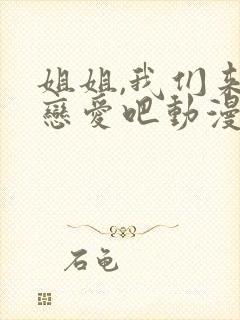 姐姐,我们来
戀愛吧動漫
石龟